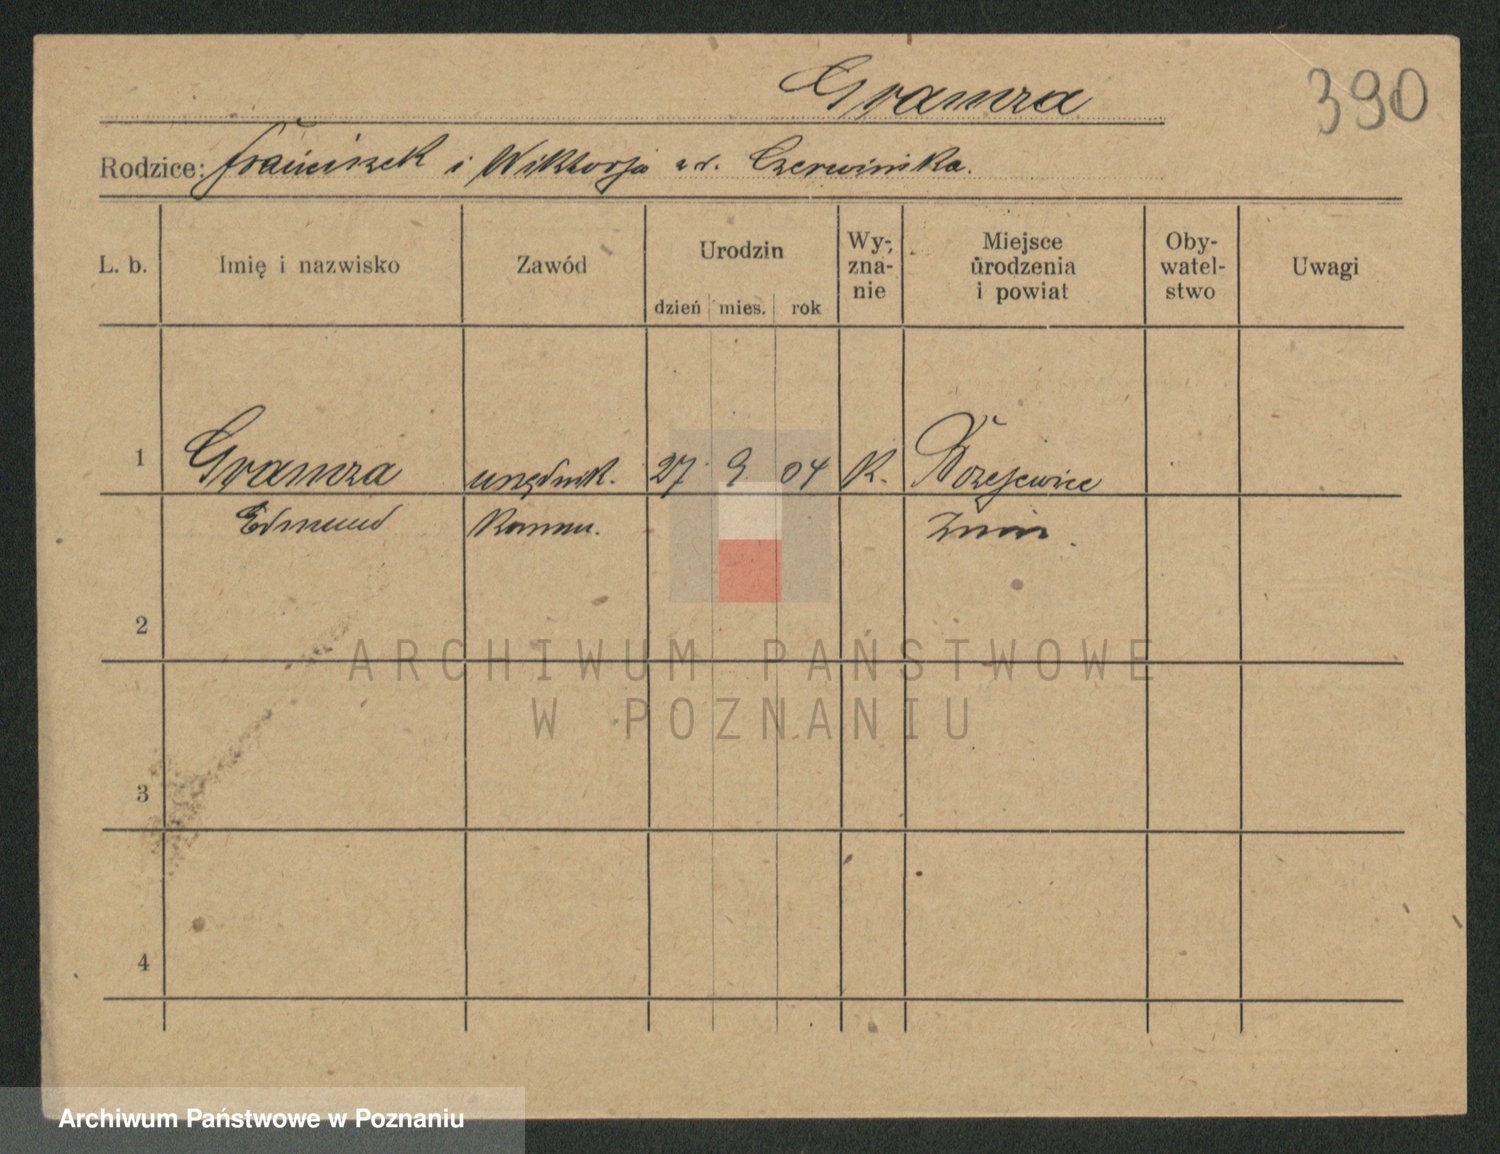 Gramza
390
Rodzice: Franciszek i Wiktorja z d. Czerwińska.
L. b. Imię i nazwisko Zawód Urodzin dzień mies. rok Wy-zna-nie Miejsce urodzenia i powiat Oby-watel-stwo Uwagi
1 Gramza urzędnik. 27 9 04 K. Bożejewice
Edmund Komun. Żnin.
2
ARCHIWUM PAŃSTWOWE
W POZNANIU
3
4
Archiwum Państwowe w Poznaniu